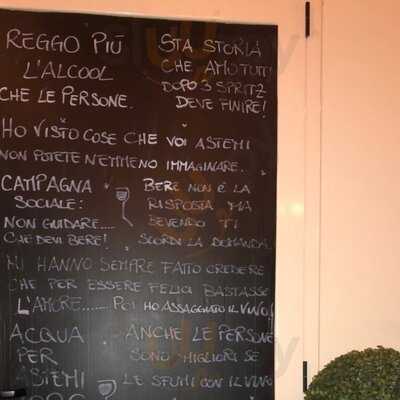 REGGO PIÚ
L'ALCOOL
CHE LE PERSONE.
STA STORIA
CHE AMO TUTTI
DOPO 3 SPRITZ
DEVE FINIRE!
HO VISTO COSE CHE VOI ASTEMI
NON POTETE NEMMENO IMMAGINARE.
CAMPAGNA
SOCIALE:
NON GUIDARE....
CHE DEVI BERE!
BERE NON È LA
RISPOSTA MA
BEVENDO TI
SCORDI LA DOMANDA.
MI HANNO SEMPRE FATTO CREDERE
CHE PER ESSERE FELICI BASTASSE
L'AMORE...... POI HO ASSAGGIATO IL VINO!
ACQUA
PER
ASTEMI
ANCHE LE PERSONE
SONO MIGLIORI SE
LE SFUMI CON IL VINO